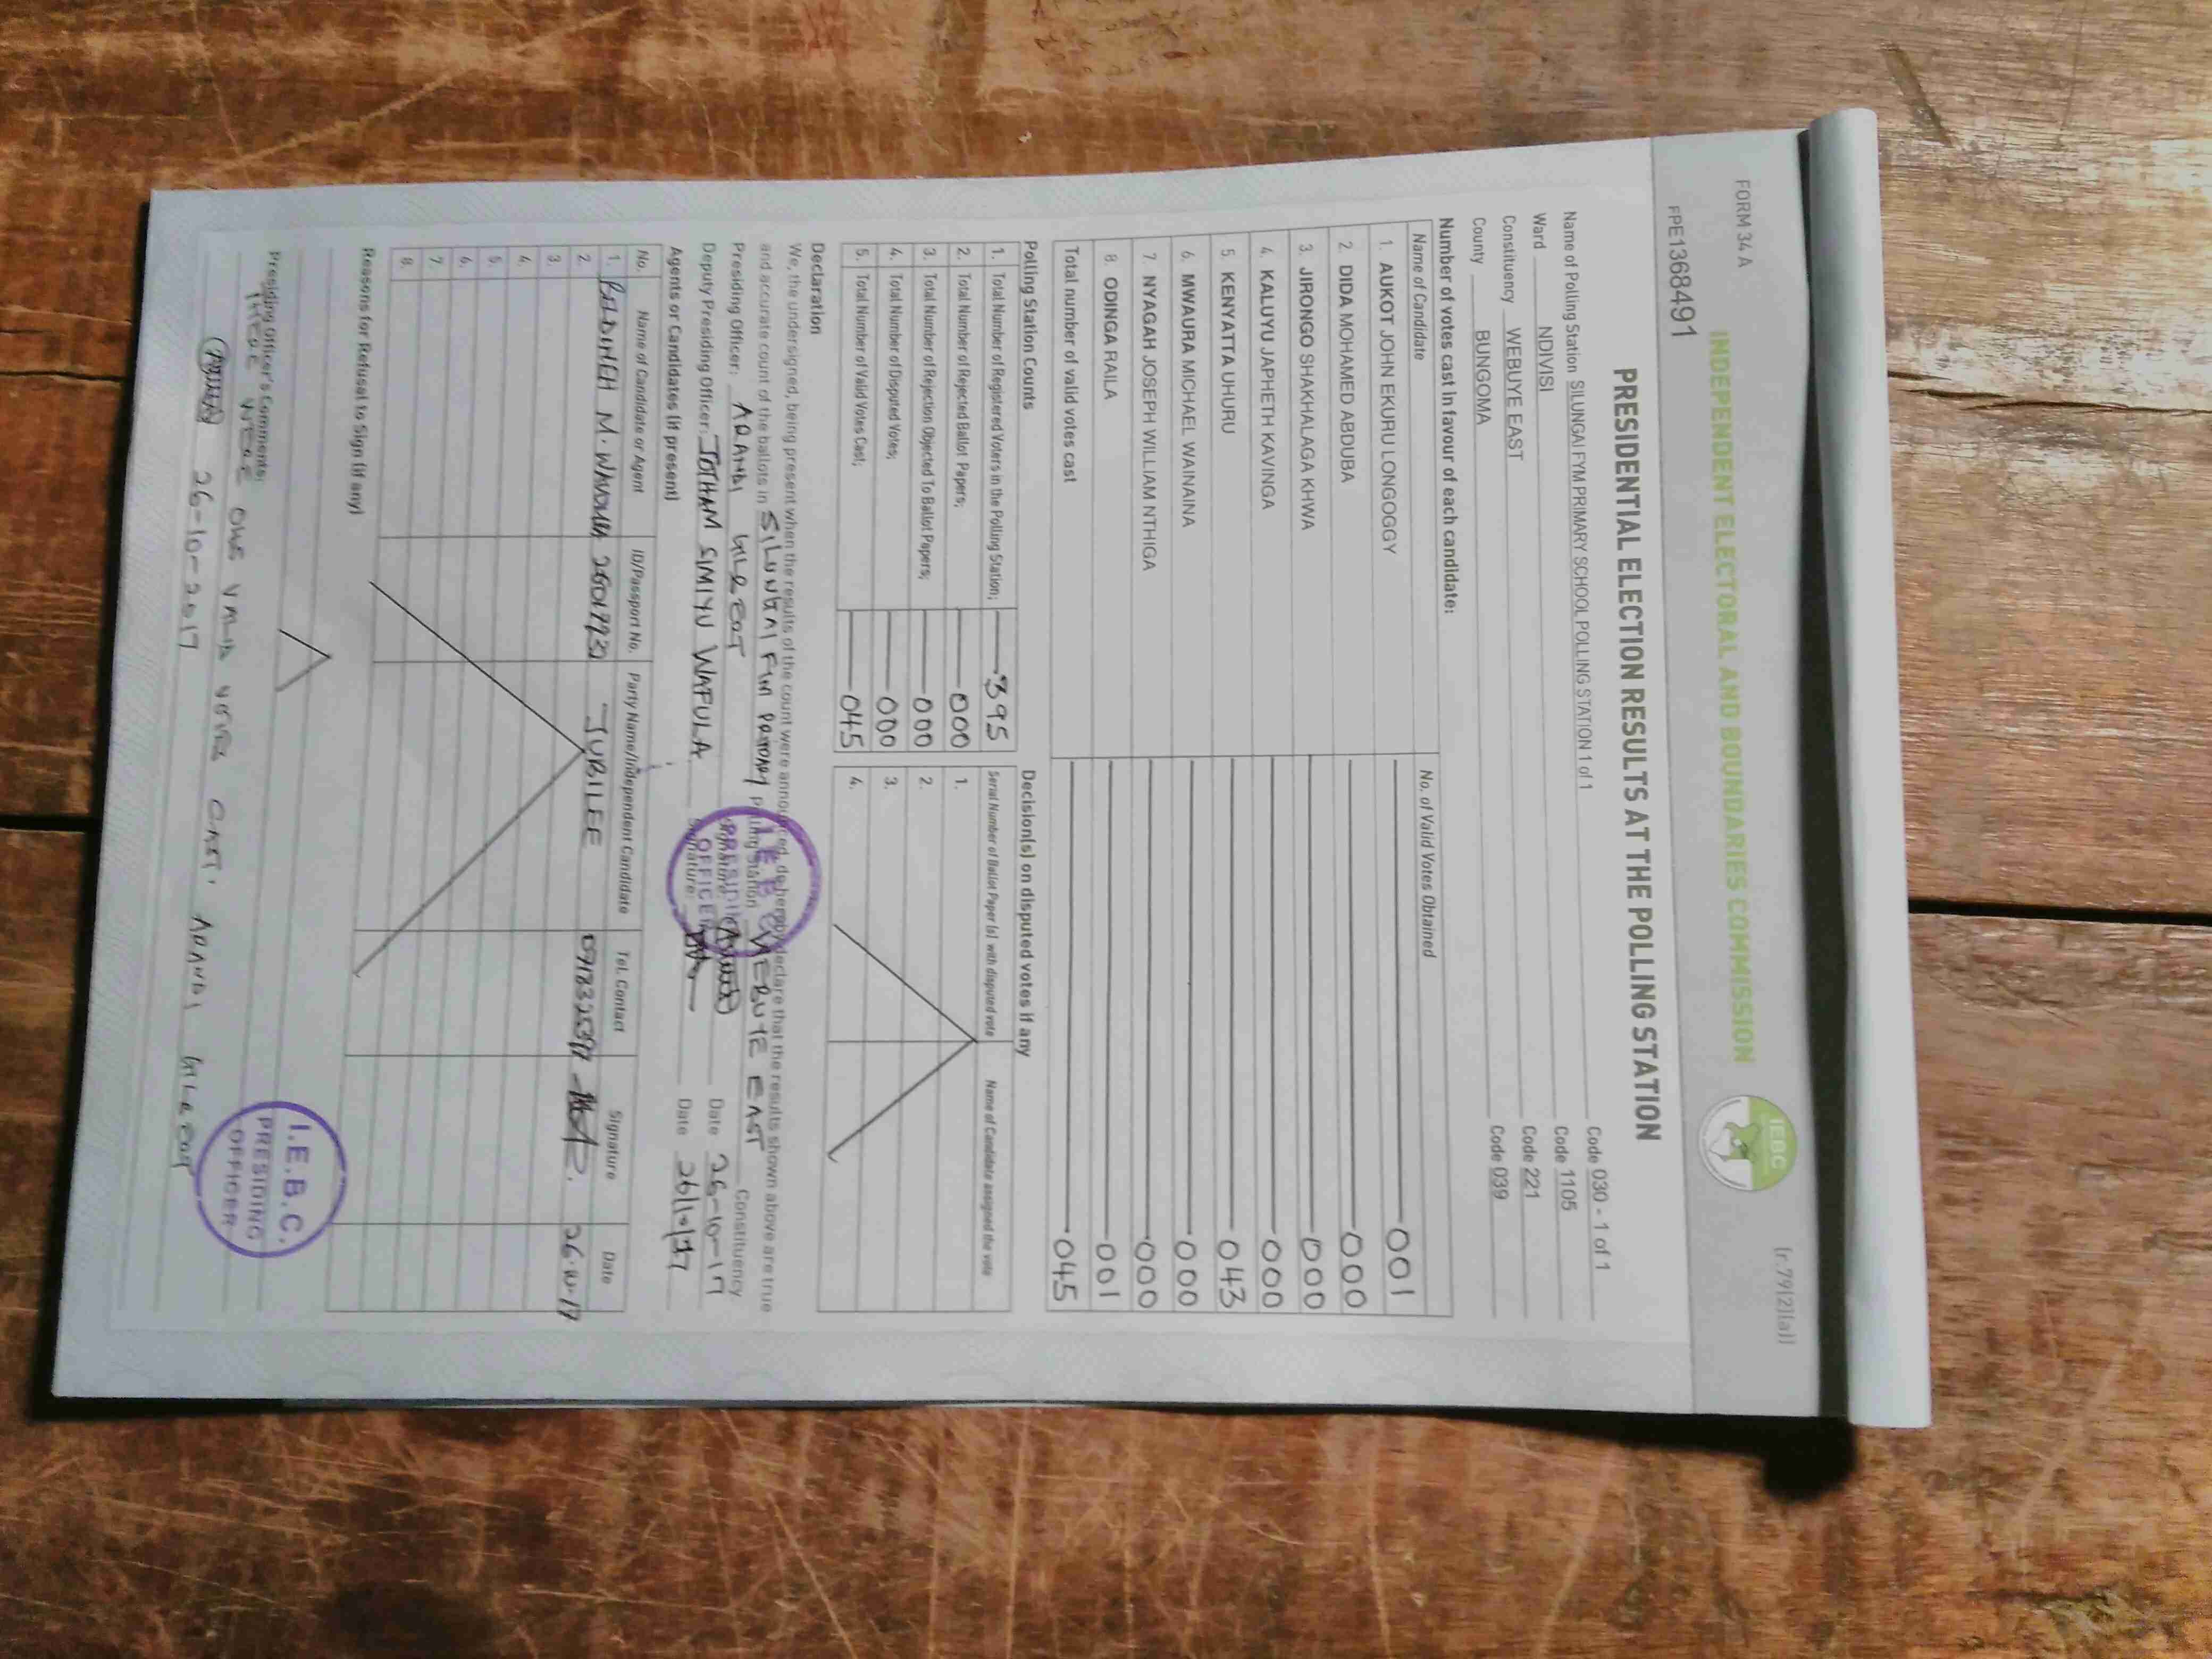 FORM 34 A
(r.79(2)(a))
INDEPENDENT ELECTORAL AND BOUNDARIES COMMISSION
IEBC
FPE1368491
PRESIDENTIAL ELECTION RESULTS AT THE POLLING STATION
Name of Polling Station SILUNGAI FYM PRIMARY SCHOOL POLLING STATION 1 of 1 Code 030 - 1 of 1
Ward NDIVISI Code 1105
Constituency WEBUYE EAST Code 221
County BUNGOMA Code 039
Number of votes cast in favour of each candidate:
Name of Candidate No. of Valid Votes Obtained
1. AUKOT JOHN EKURU LONGOGGY 001
2. DIDA MOHAMED ABDUBA 000
3. JIRONGO SHAKHALAGA KHWA 000
4. KALUYU JAPHETH KAVINGA 000
5. KENYATTA UHURU 043
6. MWAURA MICHAEL WAINAINA 000
7. NYAGAH JOSEPH WILLIAM NTHIGA 000
8. ODINGA RAILA 001
Total number of valid votes cast 045
Polling Station Counts
1. Total Number of Registered Voters in the Polling Station; 395
2. Total Number of Rejected Ballot Papers; 000
3. Total Number of Rejection Objected To Ballot Papers; 000
4. Total Number of Disputed Votes; 000
5. Total Number of Valid Votes Cast; 045
Decision(s) on disputed votes if any
Serial Number of Ballot Paper (s) with disputed vote Name of Candidate assigned the vote
1.
2.
3.
4.
Declaration
We, the undersigned, being present when the results of the count were announced, do hereby declare that the results shown above are true
and accurate count of the ballots in SILUNGAI FYM PRIMARY polling station WEBUYE EAST Constituency
Presiding Officer: Signature: Date 26-10-17
Deputy Presiding Officer: JOTHAM SIMIYU WAFULA Signature: Date 26/10/17
I.E.B.C.
PRESIDING
OFFICER
Agents or Candidates (if present)
No. Name of Candidate or Agent ID/Passport No. Party Name/Independent Candidate Tel. Contact Signature Date
1. JUBILEE 26.10.17
2.
3.
4.
5.
6.
7.
8.
Reasons for Refusal to Sign (if any)
Presiding Officer's Comments:
THERE WERE ONLY VALID VOTES CAST.
26-10-2017
I.E.B.C.
PRESIDING
OFFICER